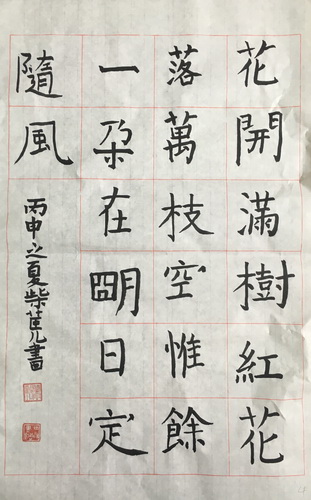 花開滿樹紅花
落萬枝空惟餘
一朶在明日定
隨風
丙申之夏柴茞凡書